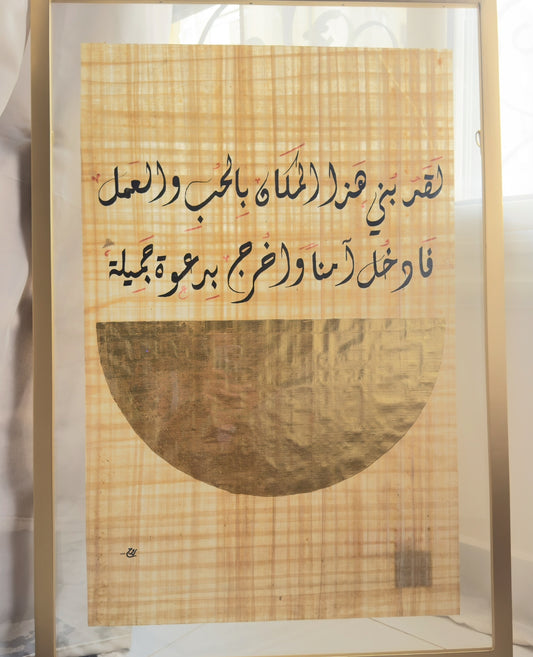 لَقَد بُني هَذا المَكَان بِالحُب والعَمل
فَادخُل آمناً وَاخرُج بِدعوة جَمِيلة